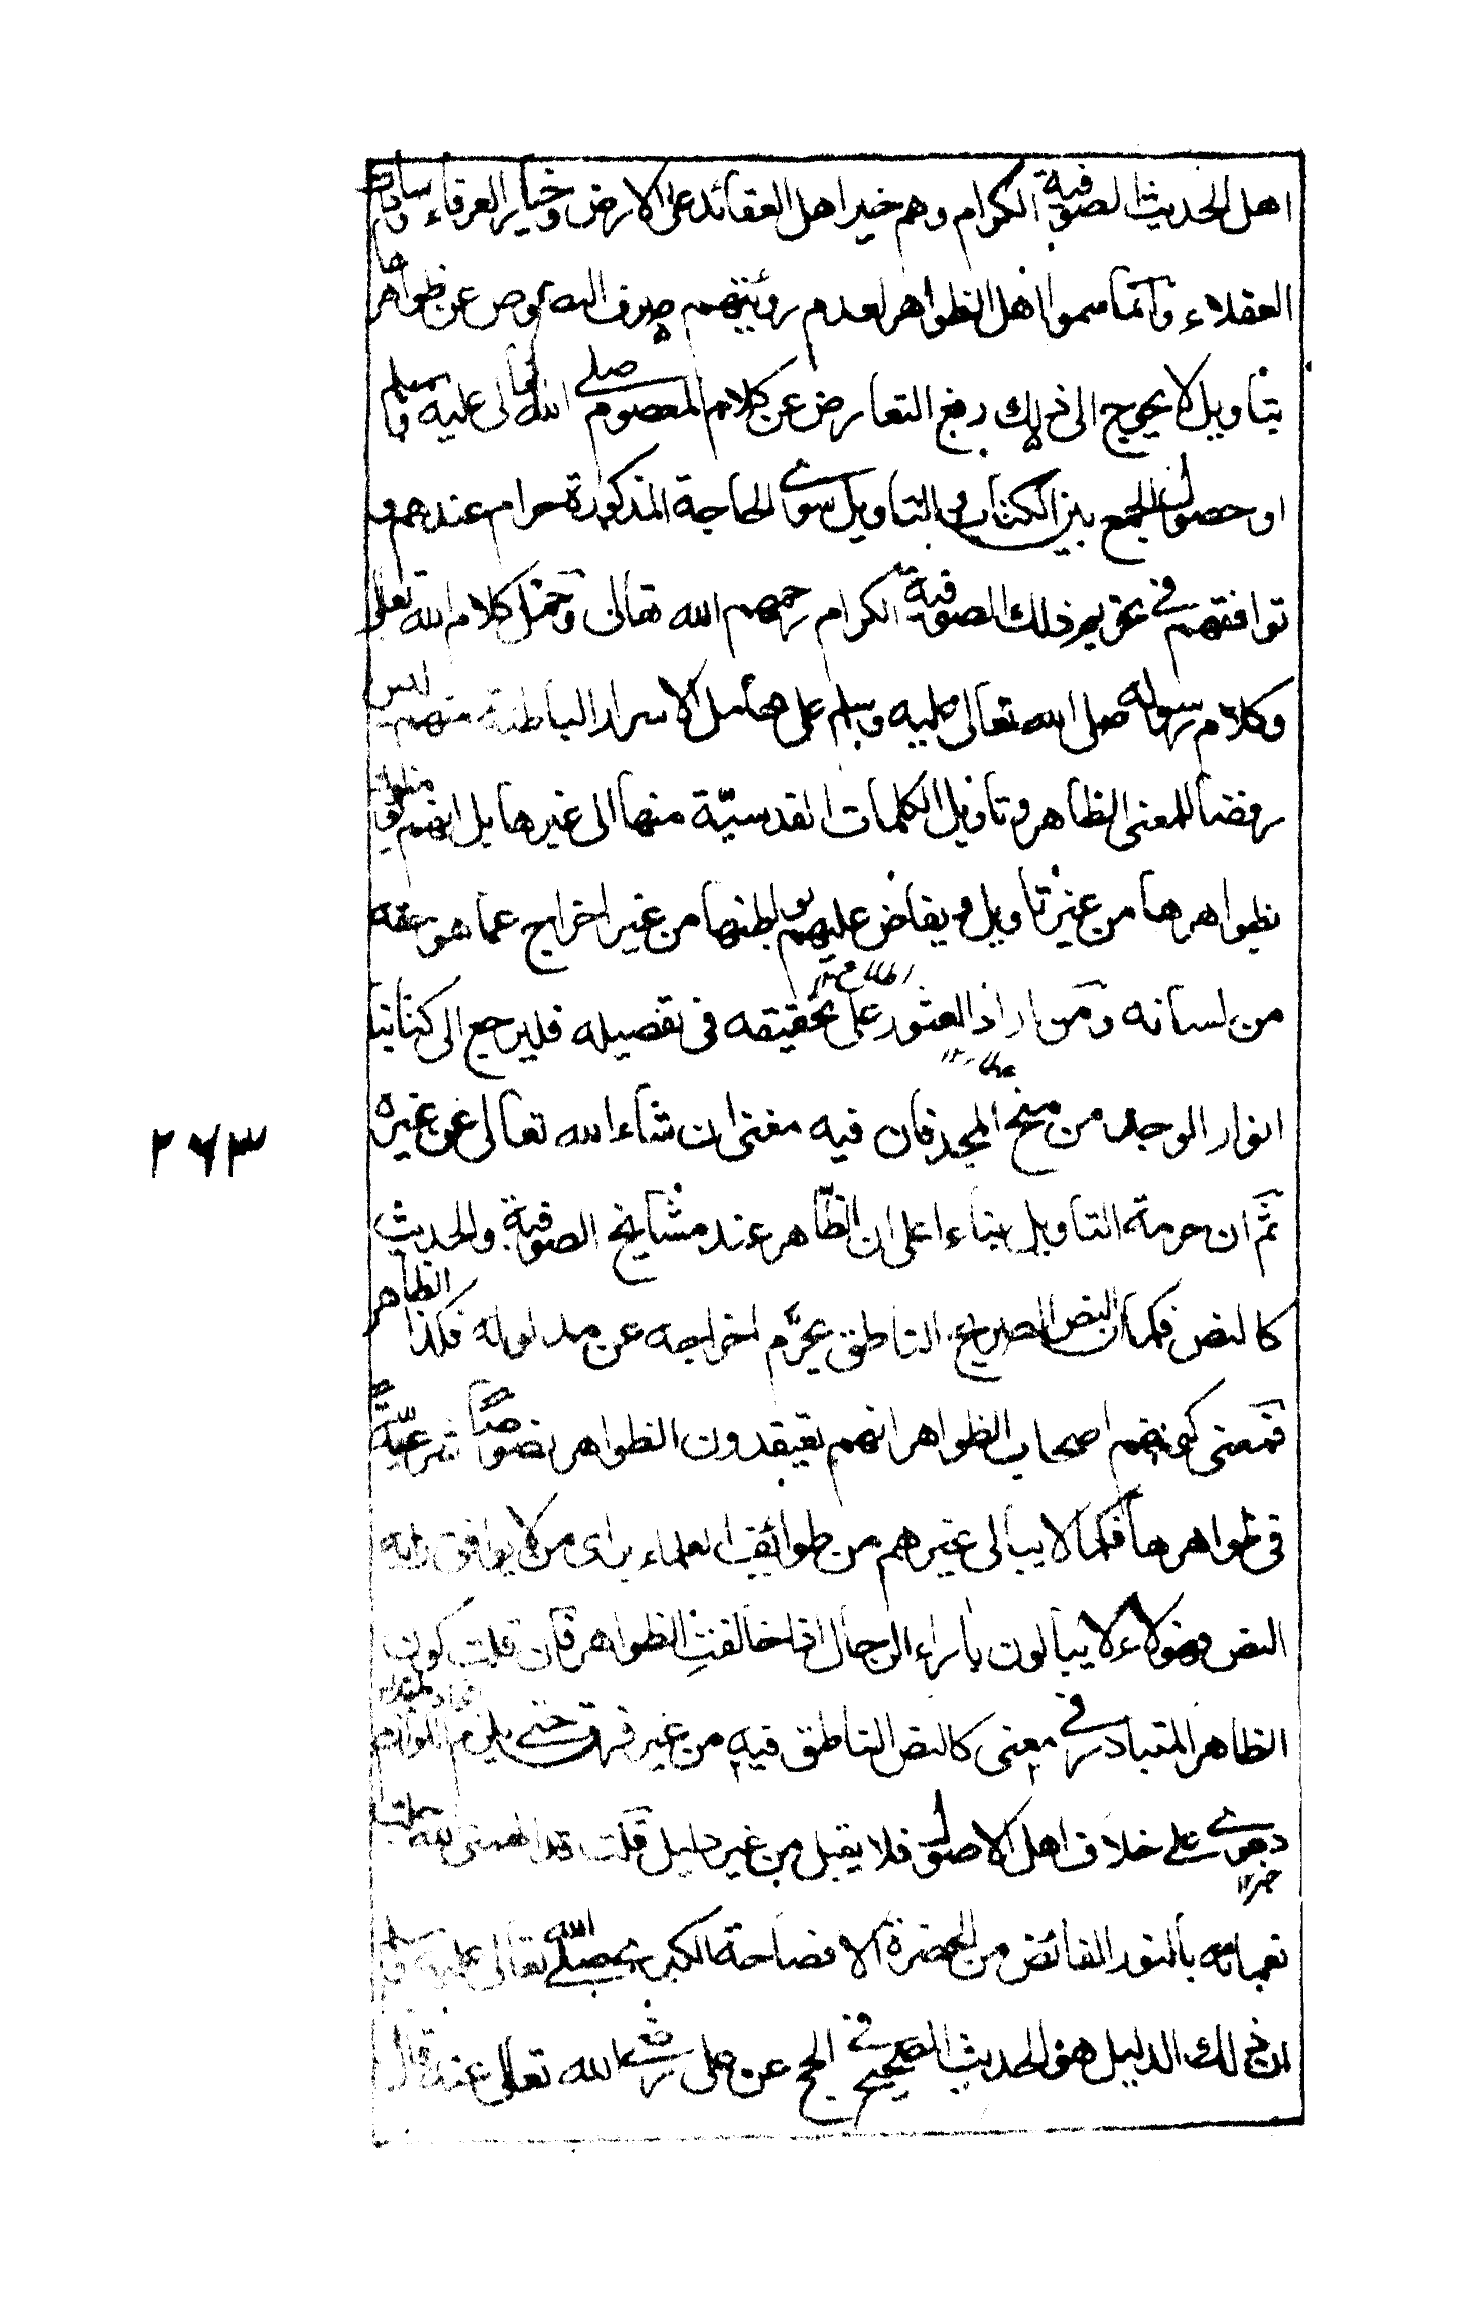 اهل الحديث الصوفية الكرام وهم خير اهل العقائد على الارض وخيار العرفاء وسادات
العقلاء وانما سموا اهل الظواهر لعدم رؤيتهم صرف النصوص عن ظواهرها
بتاويل لا يحوج الى ذلك دفع التعارض عن كلام المعصوم صلى الله تعالى عليه وسلم
او حصول الجمع بين الكتاب والتاويل سوى الحاجة المذكورة حرام عندهم و
توافقهم في تحريم ذلك الصوفية الكرام رحمهم الله تعالى وحمل كلام الله تعالى
وكلام رسوله صلى الله تعالى عليه وسلم على محامل الاسرار الباطنة منهم ليس
رفضا للمعنى الظاهر وتاويل الكلمات القدسية منها الى غيرها بل انهم
بظواهرها من غير تاويل ويفاض عليهم بواطنها من غير اخراج عما هو حقه
من لسانه ومن اراد العثور على تحقيقه في تفصيله فليرجع الى كتابنا
انوار الوجد من منح المجد فان فيه مغنى ان شاء الله تعالى عن غيره
ثم ان حرمة التاويل بناء على ان الظاهر عند مشايخ الصوفية والحديث
كالنص فكما ان النص الصريح الناطق يحرم اخراجه عن مدلوله فكذا الظاهر
فمعنى كونهم اصحاب الظواهر انهم يعتقدون الظواهر نصوصا شرعية
في ظواهرها فكما لا يبالى غيرهم من طوائف العلماء براى من لا يوافق رايه
النص فهؤلاء لا يبالون باراء الرجال اذا خالفت الظواهر فان قلت كون
الظاهر المتبادر في معنى كالنص الناطق فيه من غير فرق حتى يلزم اللوازم
دعوى على خلاف اهل الاصول فلا يقبل من غير دليل قلت قد الهمنى الله
نعمائه بالنور الفائض من الحضرة الافصاحة الكبرى صلى الله تعالى عليه وسلم
ان ذلك الدليل هو الحديث الصحيح في الحج عن على رضى الله تعالى عنه قال
٢٦٣